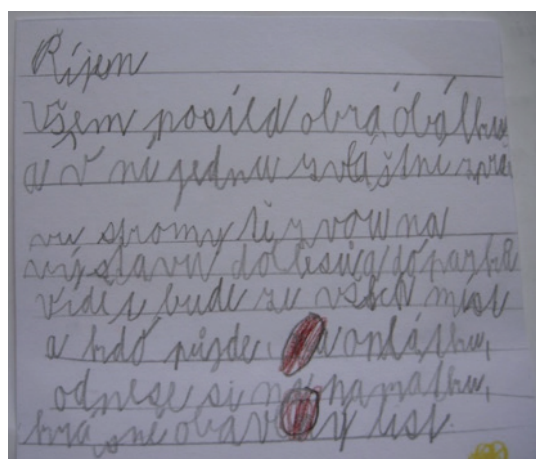 Ríjen
Všem posílá obrá obálku
a v ní jednu zvlášťní zprá
vu stromy ti zvou na
výstavu do lesů a do parků
videt bude ze všech míst
a kdo půjde na oplátku,
odnese si na památku,
krásně obarvený list.